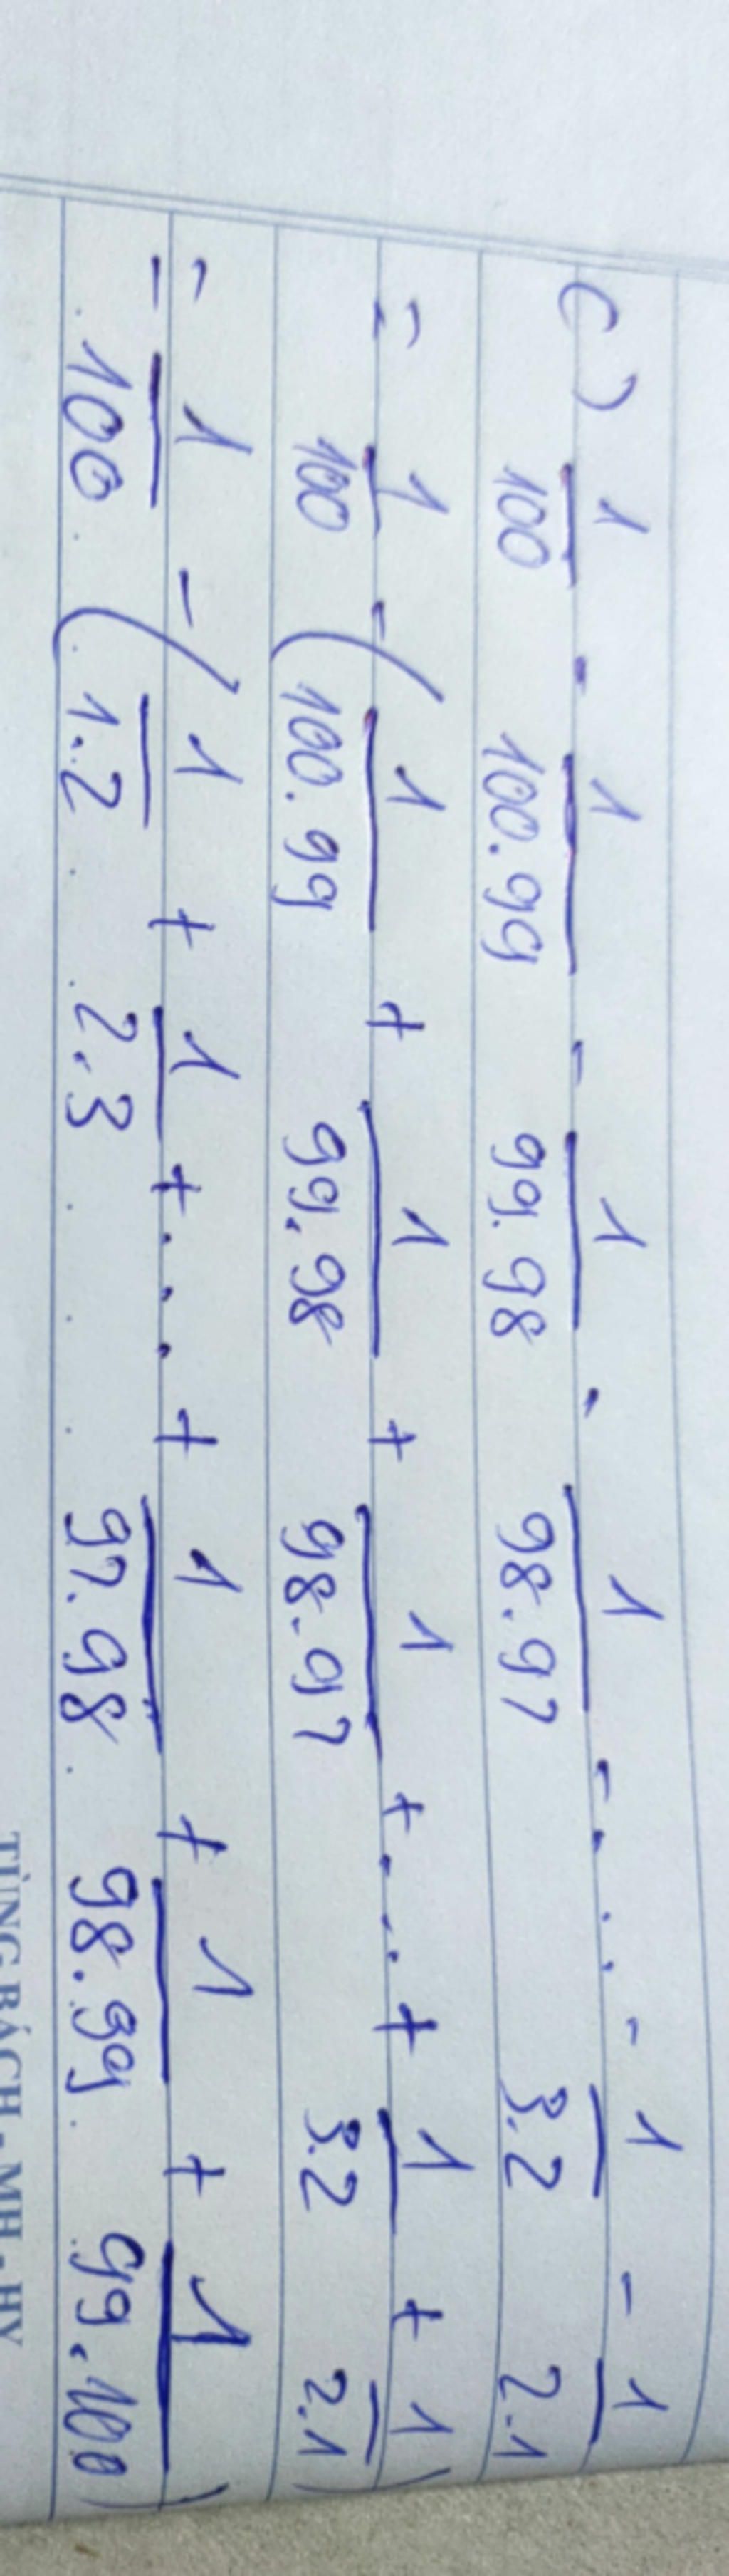 c) 1/100 - 1/100.99 - 1/99.98 - 1/98.97 - ... - 1/3.2 - 1/2.1
= 1/100 - (1/100.99 + 1/99.98 + 1/98.97 + ... + 1/3.2 + 1/2.1)
= 1/100 - (1/1.2 + 1/2.3 + ... + 1/97.98 + 1/98.99 + 1/99.100)
TÙNG BÁCH - MH - HY